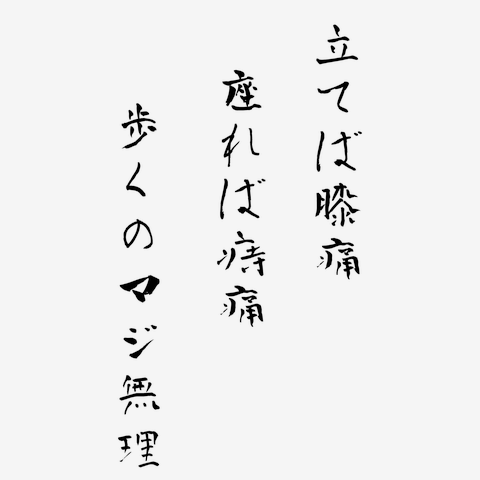 立てば膝痛
座れば痔痛
歩くのマジ無理